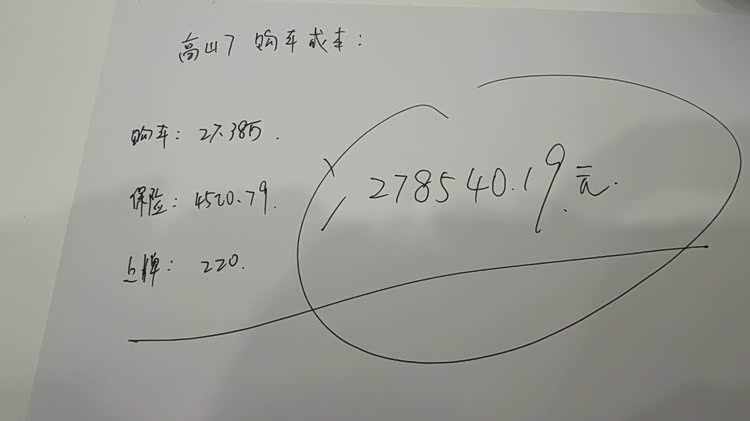 高山7 购车成本：
购车：27.385万.
保险：4520.79.
上牌：220.
278540.19元.